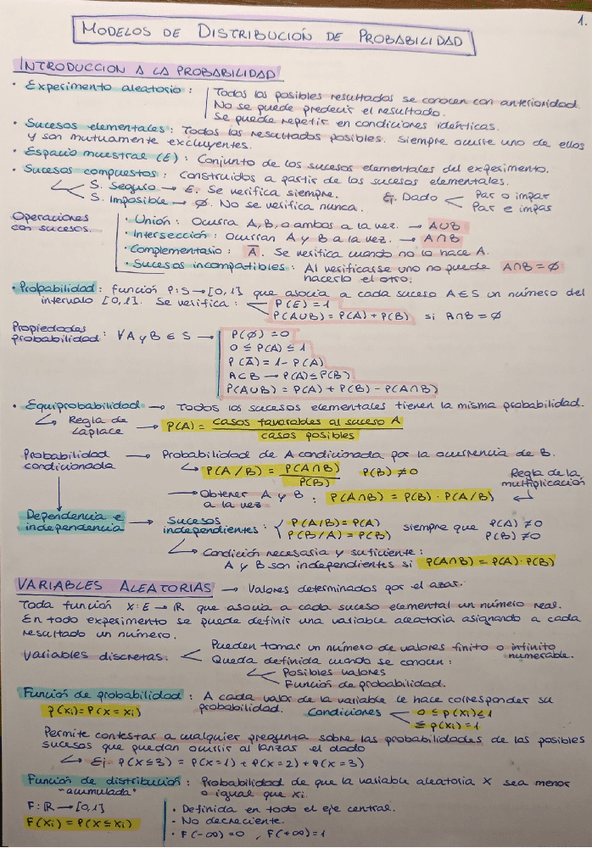 1.
MODELOS DE DISTRIBUCIÓN DE PROBABILIDAD
INTRODUCCION A LA PROBABILIDAD
· Experimento aleatorio : Todos los posibles resultados se conocen con anterioridad.
No se puede predecir el resultado.
Se puede repetir en condiciones idénticas.
· Sucesos elementales : Todos los resultados posibles. Siempre ocurre uno de ellos
y son mutuamente excluyentes.
· Espacio muestral (E) : Conjunto de los sucesos elementales del experimento.
· Sucesos compuestos : Construidos a partir de los sucesos elementales.
S. Seguro → E. Se verifica siempre.
S. Imposible → ∅. No se verifica nunca.
Ej. Dado < Par o impar
Par e impar
Operaciones con sucesos.
· Unión : Ocurra A, B, o ambos a la vez. → A∪B
· Intersección : Ocurran A y B a la vez. → A∩B
· Complementario : A̅. Se verifica cuando no lo hace A.
· Sucesos incompatibles : Al verificarse uno no puede A∩B = ∅
hacerlo el otro.
· Probabilidad : función P: S → [0,1] que asocia a cada suceso A∈S un número del
intervalo [0,1]. Se verifica : P(E) = 1
P(A∪B) = P(A) + P(B) si A∩B = ∅
Propiedades probabilidad : ∀A y B ∈ S → P(∅) = 0
0 ≤ P(A) ≤ 1
P(A̅) = 1 - P(A)
A⊂B → P(A) ≤ P(B)
P(A∪B) = P(A) + P(B) - P(A∩B)
· Equiprobabilidad → Todos los sucesos elementales tienen la misma probabilidad.
Regla de Laplace → P(A) = casos favorables al suceso A / casos posibles
Probabilidad condicionada → Probabilidad de A condicionada por la ocurrencia de B.
P(A/B) = P(A∩B) / P(B) P(B) ≠ 0
Regla de la multiplicación
→ Obtener A y B a la vez : P(A∩B) = P(B) · P(A/B)
Dependencia e independencia → Sucesos independientes : { P(A/B) = P(A) siempre que P(A) ≠ 0
P(B/A) = P(B) P(B) ≠ 0
Condición necesaria y suficiente :
A y B son independientes si P(A∩B) = P(A) · P(B)
VARIABLES ALEATORIAS → Valores determinados por el azar.
Toda función X: E → ℝ que asocia a cada suceso elemental un número real.
En todo experimento se puede definir una variable aleatoria asignando a cada
resultado un número.
Variables discretas. < Pueden tomar un número de valores finito o infinito
numerable.
Queda definida cuando se conocen :
Posibles valores
Función de probabilidad.
Función de probabilidad : A cada valor de la variable le hace corresponder su
probabilidad. Condiciones < 0 ≤ p(xi) ≤ 1
p(xi) = P(X = xi)
Σ p(xi) = 1
Permite contestar a cualquier pregunta sobre las probabilidades de los posibles
sucesos que puedan ocurrir al lanzar el dado
Ej. P(X≤3) = P(X=1) + P(X=2) + P(X=3)
Función de distribución : Probabilidad de que la variable aleatoria X sea menor
"acumulada" o igual que xi.
F: ℝ → [0,1] · Definida en todo el eje central.
· No decreciente.
F(xi) = P(X ≤ xi) · F(-∞) = 0 , F(+∞) = 1